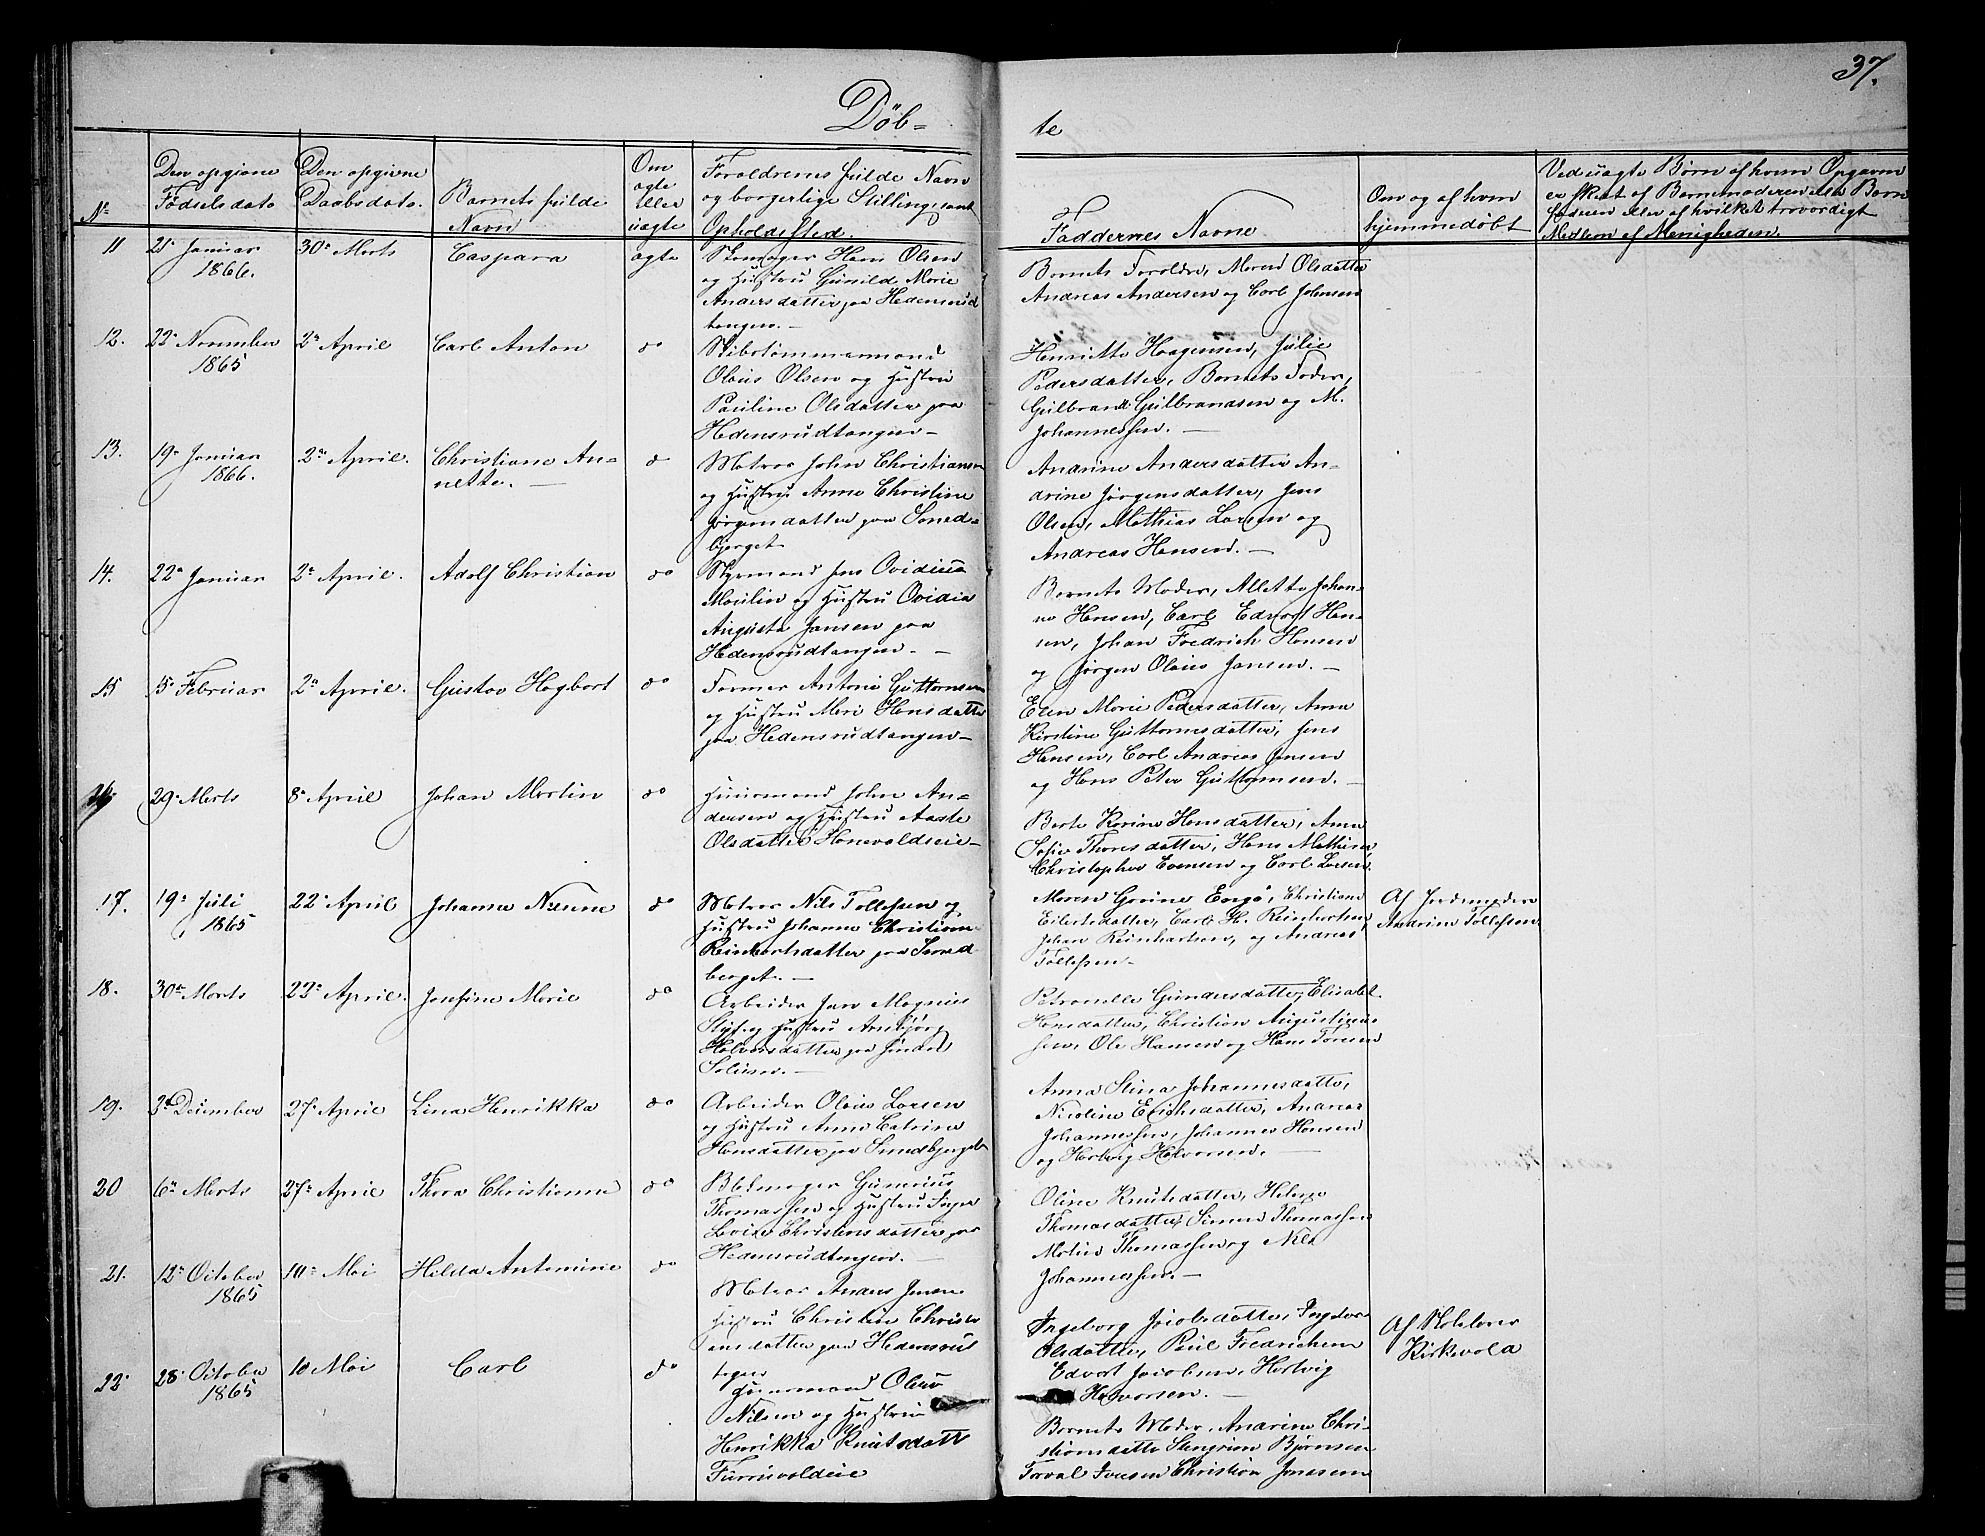 37.
Döb= te
No
Den opgivne Fødselsdato
Den opgivne Daabsdato.
Barnets fulde Navn
Om ægte eller uægte
Forældrenes fulde Navn og borgerlige Stilling samt Opholdssted.
Faddernes Navne
Om og af hvem hjemmedøbt
Ved uægte Børn af hvem Opgaven er skeet af Barnemoderen eller Barnefaderen eller af hvilket troværdigt Medlem af Menigheden.
11
21. Januar
1866.
30te Marts
Caspara
ægte
Skomager Hans Olsen
og Hustru Gunild Marie
Andersdatter paa Hedensrud
tangen. —
Barnets Forældre, Maren Olsdatter
Andreas Andersen og Carl Johnsen
12.
22. November
1865
2den April
Carl Anton
do
Skibstømmermand
Olaus Olsen og Hustru
Pauline Olsdatter paa
Hedensrudtangen —
Henriette Haagensen, Julie
Pedersdatter, Barnets Fader,
Gulbrand Gulbrandsen og M.
Johannessen. —
13.
19. Januar
1866.
2den April.
Christiane An=
nette. —
do
Matros John Christiansen
og Hustru Anne Christine
Jørgensdatter paa Sand=
bjerget
Andrine Andersdatter An=
drine Jørgensdatter, Jens
Olsen, Mathias Larsen og
Andreas Hansen. —
14.
22. Januar
2den April.
Adolf Christian
do
Styrmand Jens Ovidius
Maulin og Hustru Ovidia
Augusta Jansen paa
Hedensrudtangen. —
Barnets Moder, Alette Johan=
ne Hansen, Carl Edvart Han=
sen, Johan Fredrich Hansen
og Jørgen Olaus Jansen. —
15
15. Februar
2den April.
Gustav Hagbart
do
Farmer Anton Guttormsen
og Hustru Mari Hansdatter
paa Hedensrudtangen —
Elen Marie Pedersdatter, Anna
Kirstine Guttormsdatter, Jens
Hansen, Carl Andreas Jansen
og Hans Peter Guttormsen. —
16
29. Marts
8. April
Johan Martin
do
Huusmand John An=
dersen og Hustru Aaste
Olsdatter Hanevoldseie —
Berte Karine Hansdatter, Anne
Sofie Thoresdatter, Hans Mathisen
Christopher Evensen og Carl Larsen.
17.
19. Juli
1865
22. April
Johanna
do
Matros Nils Tollefsen og
Hustru Johanne Christiane
Reinhartsdatter paa Sand
berget. —
Maren Gurine Engø, Christiane
Eilertsdatter, Carl H. Reinhartsen,
Johan Reinhartsen, og Andreas
Tollefsen —
Af Jordemoder
Andrine Tollefsen
18.
30te Marts
22. April.
Josefine Marie
do
Arbeider Jan Magnus
og Hustru Anbjørg
Halvorsdatter paa
Solum. —
Petronelle Gundersdatter, Elisabet
Hansdatter, Christian Augustinus=
sen, Ole Hansen og Hans Toresen
19.
3. December
27. April
Lina Henrikka
do
Arbeider Olaus Larsen
og Hustru Anne Catrine
Hansdatter paa Sandbjerget
Anna Stina Johannesdatter,
Nicoline Erichsdatter, Andreas
Johannessen, Johannes Hansen
og Hartvig Halvorsen. —
20
6te Marts
27. April
Thora Christianne
do
Blokmager Gunerius
Thomassen og Hustru Inger
Lovise Christensdatter paa
Hedensrudtangen. —
Oline Knutsdatter, Helene
Thomasdatter, Simen Thomassen
Matius Thomassen og Nils
Johannessen. —
21.
12te October
1865
10de Mai
Hilda Antonine
do
Matros Anders Jensen
Hustru Christine Christi
ansdatter paa Hedensrud
tangen
Ingeborg Jacobsdatter, Ingeborg
Olsdatter, Paul Fredrichsen
Edvart Jacobsen, Hartvig
Halvorsen. —
Af
Kirkevold
22.
28. October
1865
10 Mai
Carl
do
Huusmand Olaus
Nilsen og Hustru
Henrikka Knutsdatt
Furuvoldeie
Barnets Moder, Andrine Chri=
stiansdatter Bjørnsen
Torval Iversen Christian Jonassen